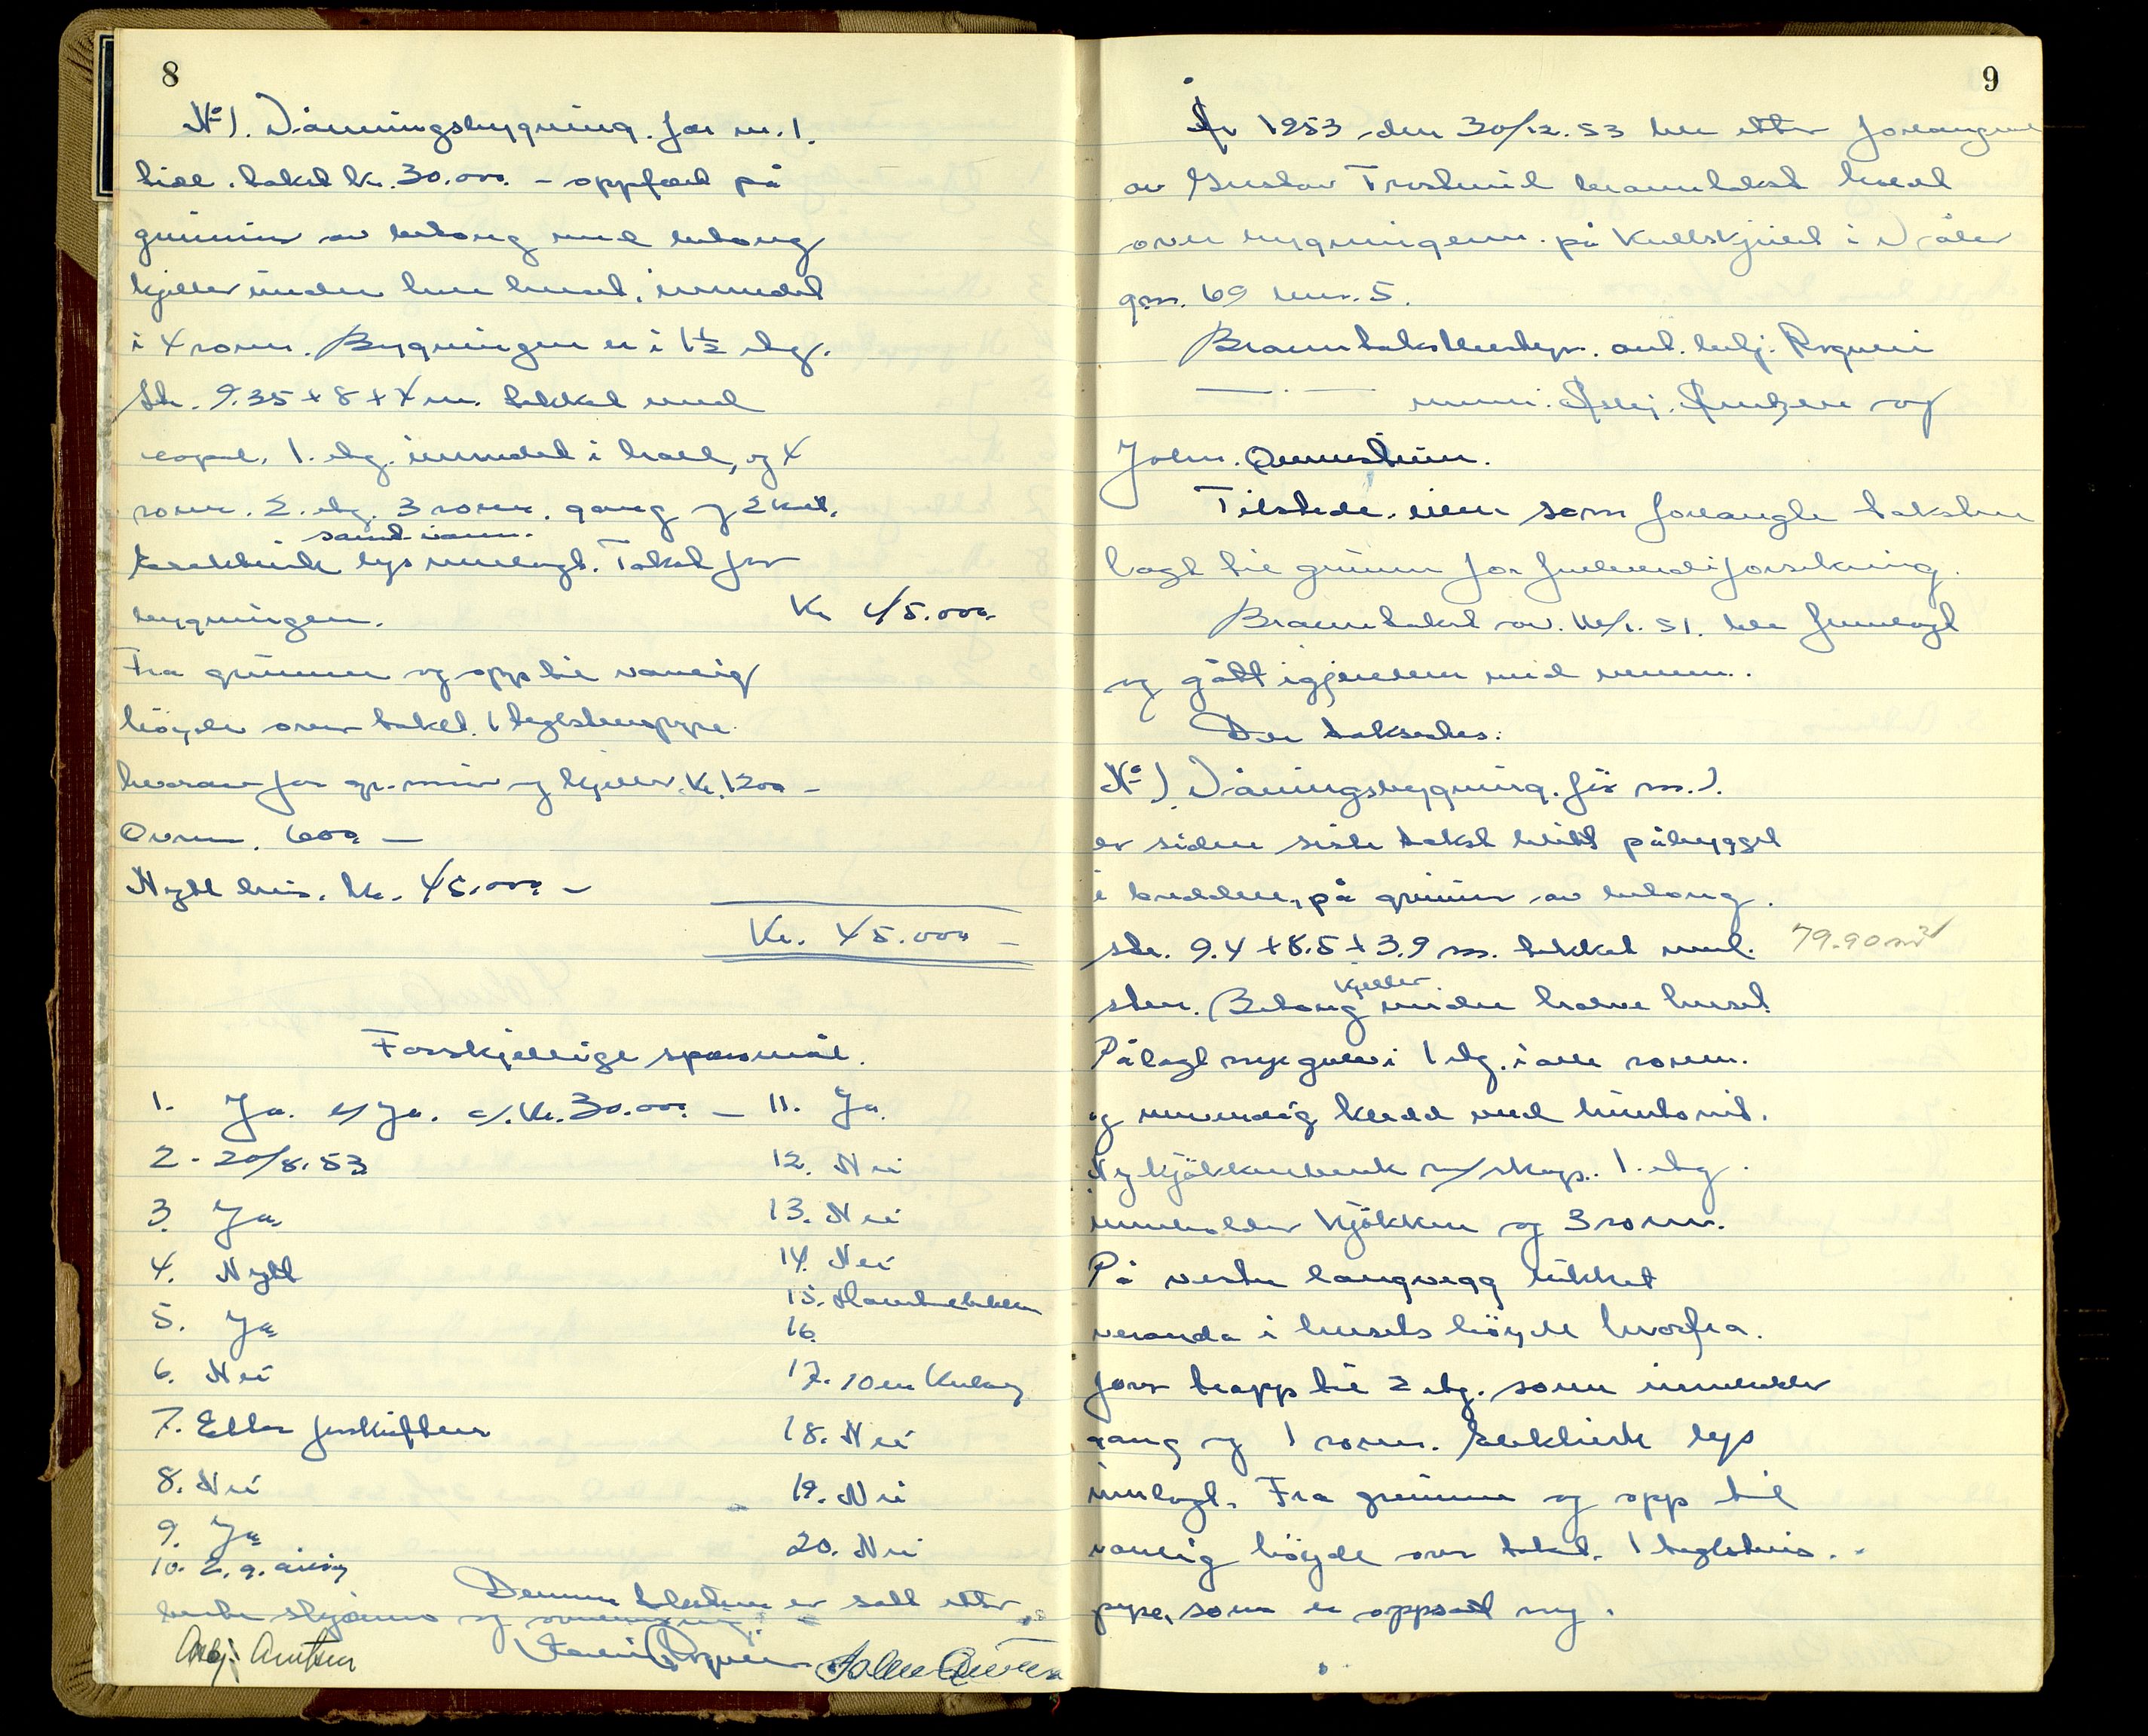 8
No 1. Våningsbygning. før nr. 1.
tidl. takst kr. 30.000. - oppført på
grunnmur av betong med betong
kjeller under hele huset, innredet
i 4 rom. Bygningen er i 1½ etg.
Str. 9.35 + 8 + 4 m. tekket med
papp. 1. etg. innredet i hall, og 4
rom. 2. etg. 3 rom. gang og 2 kott.
samt vann.
Elektrisk lys innlagt. Takst for
bygningen. Kr 45.000.
Fra grunnen og opp til vanlig
höyde over taket 1 teglstenspipe.
hvorav for gr. mur og kjeller. Kr. 1200 -
Ovnen. 600 -
Nytt hus. kr. 45.000 -
Kr. 45.000 -
Forskjellige spørsmål.
1. Ja. b/ Ja. c/. Kr. 30.000. -
2. 20/8. 53
3. Ja.
4. Nytt
5. Ja
6. Nei
7. Etter forskriftene
8. Nei
9. Ja
10. 2. g. årlig
11. Ja.
12. Nei
13. Nei
14. Nei
15.
16.
17. 10 m
18. Nei
19. Nei
20. Nei
Denne taksten er satt etter
beste skjønn og
Asbj. Arntsen
9
År 1953, den 30/12. 53 ble etter forlangende
av Gustav branntakst holdt
over bygningene på i Våler
gnr. 69 bnr. 5.
Branntakstbestyr. ant. Rogneri
— · — menn. Asbj. Arntzen og
John.
Tilstede. eier som forlangte taksten
lagt til grunn for fullverdiforsikring.
Branntakst av. 51. ble fremlagt
og gått igjennem med
Der taksertes:
No 1. Våningsbygning. før nr. 1.
er siden siste takst blitt påbygget
i bredden, på grunnmur av betong.
str. 9.4 + 8.5 + 3.9 m. tekket med. 79.90 m²
kjeller
sten. Betong under halve huset
Pålagt nye gulv i 1 etg. i alle rom.
og innvendig kledd med huntonit.
Ny kjökkenbenk m/skap. 1. etg.
inneholder kjökken og 3 rom.
På vestre langvegg lukket
veranda i husets höyde hvorfra.
går trapp til 2 etg. som inneholder
gang og 1 rom. Elektrisk lys
innlagt. Fra grunnen og opp til
vanlig höyde over taket. 1 teglstens. -
pipe, som er oppsatt ny.